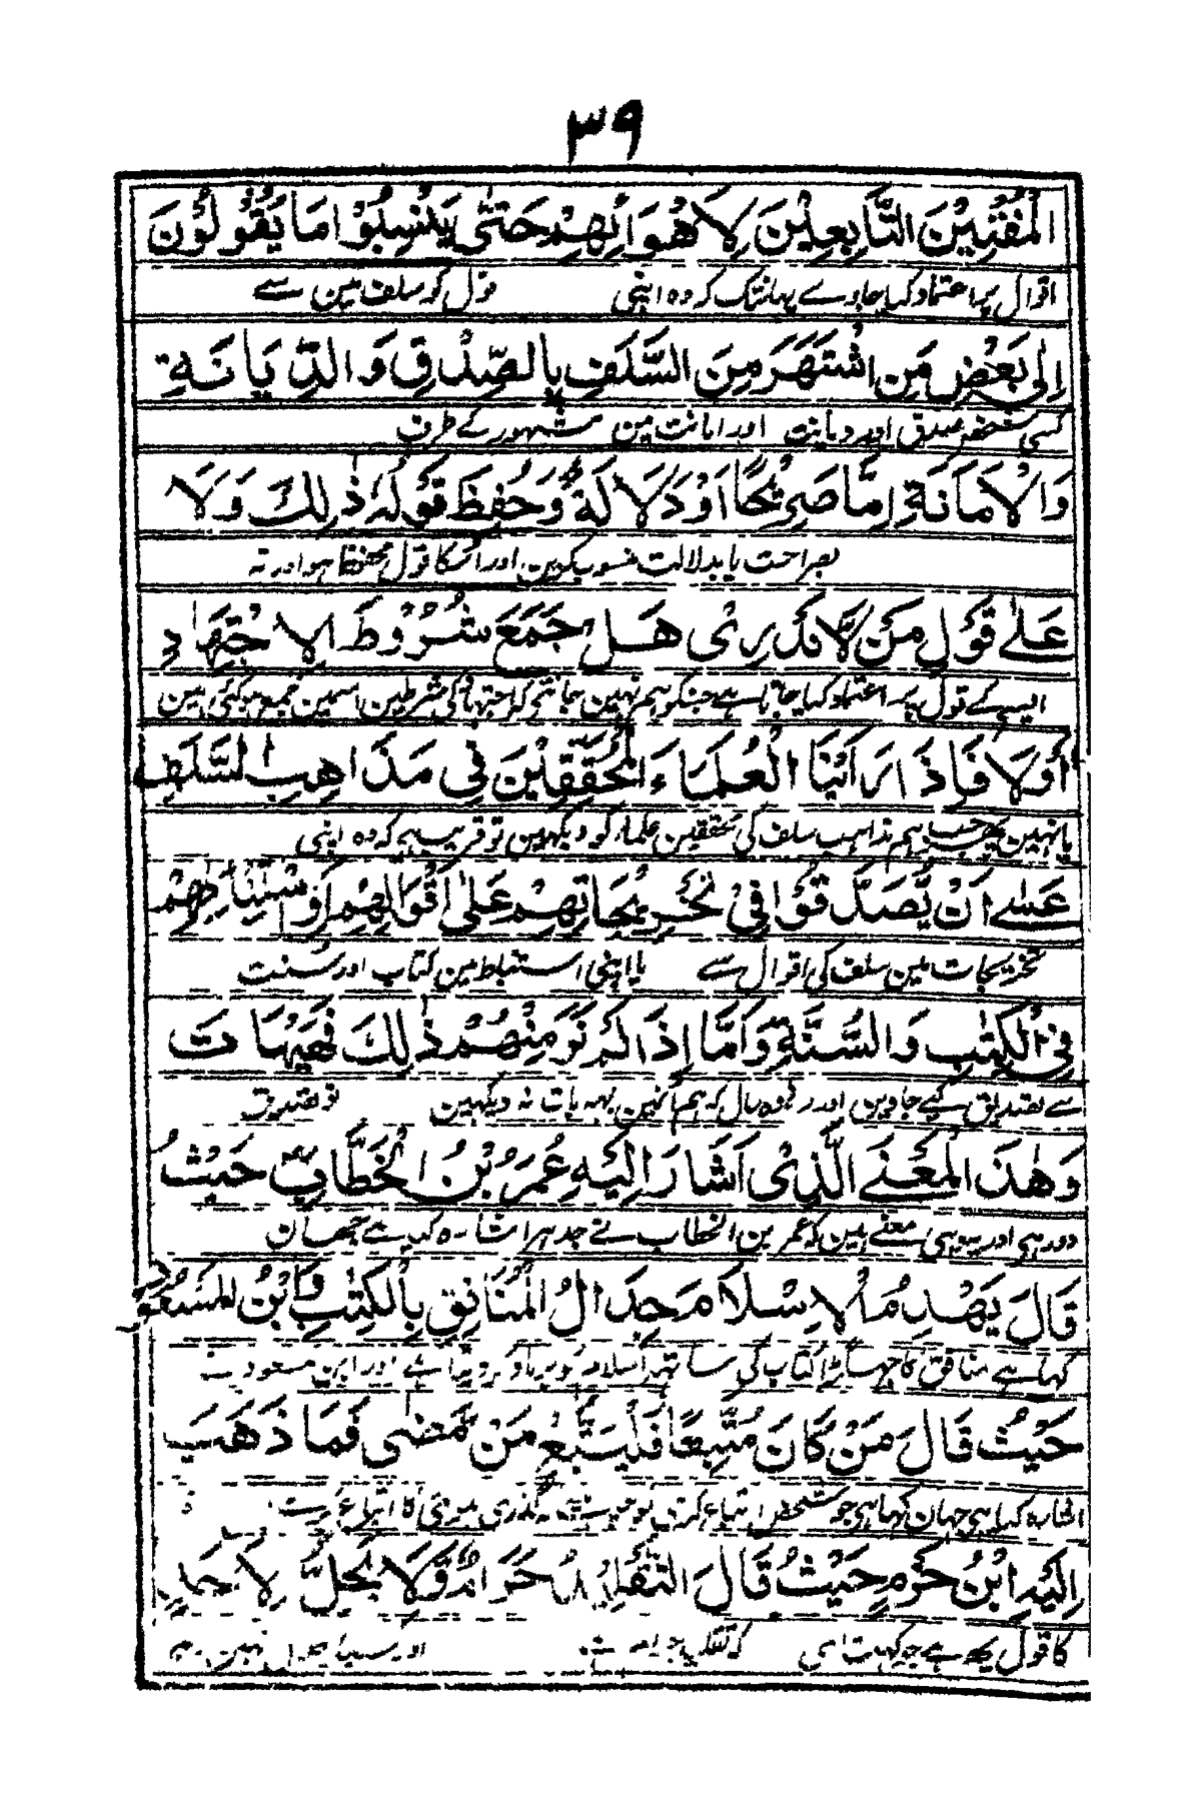 ٣٩
الْمُفْتِيْنَ التَّابِعِيْنَ لِاَهْوَائِهِمْ حَتّٰى يَنْسِبُوْا مَا يَقُوْلُوْنَ
اقوال پر اعتماد کیا جاوے یہانتک کہ وہ اپنی قول کو سلف مین سے
اِلٰى بَعْضِ مَنِ اشْتَهَرَ مِنَ السَّلَفِ بِالصِّدْقِ وَالدِّيَانَةِ
کسی شخص صدق اور دیانت اور امانت مین مشہور کے طرف
وَالْاَمَانَةِ اِمَّا صَرِيْحًا اَوْ دَلَالَةً وَحُفِظَ قَوْلُهٗ ذٰلِكَ وَلَا
بصراحت یا بدلالت منسوب کرین اور اسکا قول محفوظ ہو اور نہ
عَلٰے قَوْلِ مَنْ لَّا نَدْرِىْ هَلْ جَمَعَ شُرُوْطَ الْاِجْتِهَادِ
ایسے کے قول پر اعتماد کیا جاتا ہے جنکو ہم نہین جانتے کہ اجتہاد کی شرطین اسمین جمع ہوگئی ہین
اَوْلَا فَاِذَا رَاَيْنَا الْعُلَمَاءَ الْمُحَقِّقِيْنَ فِىْ مَذَاهِبِ السَّلَفِ
یا نہین پھر جب ہم مذاہب سلف کی محققین علماء کو دیکھین تو قریب ہے کہ وہ اپنی
عَسٰے اَنْ يَّصْدُقُوْا فِىْ تَخْرِيْجَاتِهِمْ عَلٰى اَقْوَالِهِمْ اَوِاسْتِنْبَاطِهِمْ
تخریجات مین سلف کی اقوال سے یا اپنی استنباط مین کتاب اور سنت
فِى الْكِتٰبِ وَالسُّنَّةِ وَاَمَّا اِذَا لَمْ نَرَ مِنْهُمْ ذٰلِكَ فَهَيْهَاتَ
سے تصدیق کیے جاوین اور در وہ حال کہ ہم انہین یہہ بات نہ دیکہین تو تصدیق
وَهٰذَا الْمَعْنَے الَّذِىْ اَشَارَ اِلَيْهِ عُمَرُ بْنُ الْخَطَّابِ حَيْثُ
دور ہی اور یہی معنے ہین کہ عمر بن الخطاب نے جدہر اشارہ کیا ہے جہان
قَالَ يَهْدِمُ الْاِسْلَامَ جِدَالُ الْمُنَافِقِ بِالْكِتٰبِ وَابْنُ الْمَسْعُوْدِ
کہا ہے منافق کا جہگڑا کتاب کی ساتھ اسلام کو برباد کر دیتا ہے اور ابن مسعود نے
حَيْثُ قَالَ مَنْ كَانَ مُتَّبِعًا فَلْيَتَّبِعْ مَنْ مَّضٰى فَمَا ذَهَبَ
اشارہ کیا ہی جہان کہا ہی جو شخص اتباع کری تو گذری ہوئی کا اتباع کرے
اِلَيْهِ ابْنُ حَزْمٍ حَيْثُ قَالَ التَّقْلِيْدُ حَرَامٌ وَّلَا يَحِلُّ لِاَحَدٍ
کا قول یہ ہے جو کہتا ہے کہ تقلید حرام ہے اور